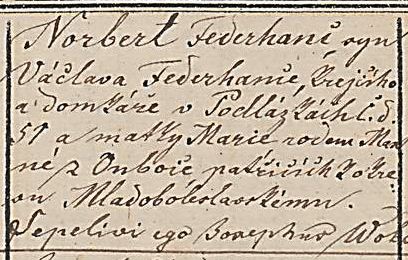 Norbert Federhanś syn
Václava Federhanśe, krejčího
a domkáře v Podlázkách č. d.
51 a matky Marie rodem
né z patřících k okre
su Mladoboleslavskému.
Sepelivi ego Josephus